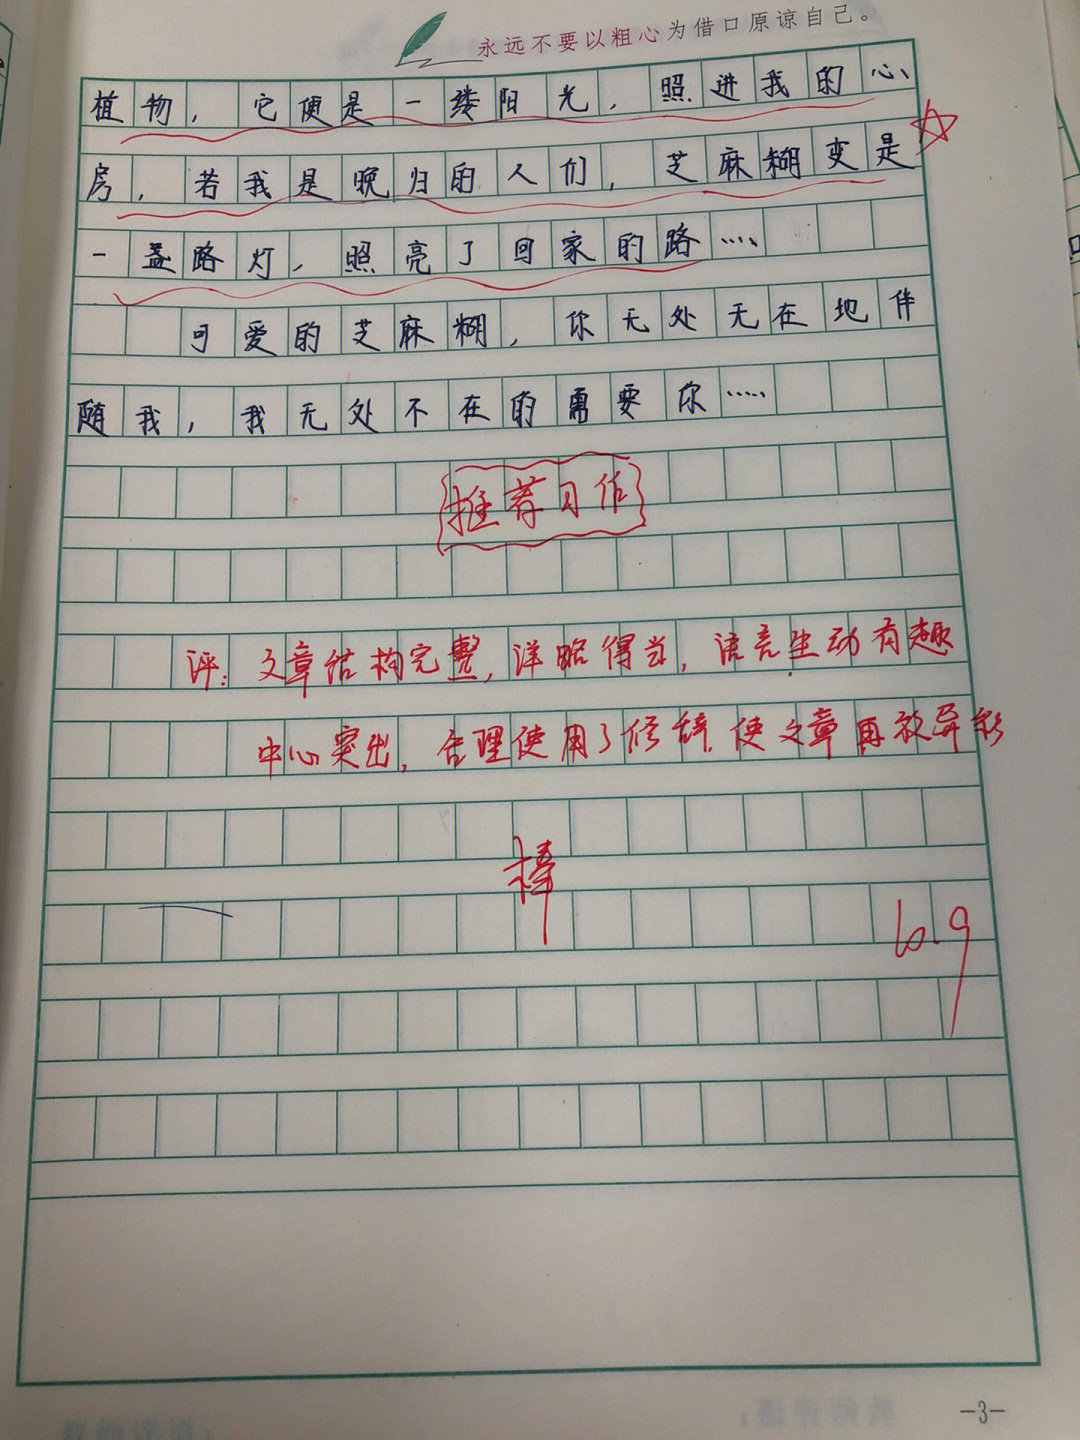 永远不要以粗心为借口原谅自己。
植物，它便是一缕阳光，照进我的心
房，若我是晚归的人们，芝麻糊变是
一盏路灯，照亮了回家的路……
可爱的芝麻糊，你无处无在地伴
随我，我无处不在的需要你……
推荐习作
评：文章结构完整，详略得当，语言生动有趣
中心突出，合理使用了修辞，使文章再放异彩
棒
6.9
-3-